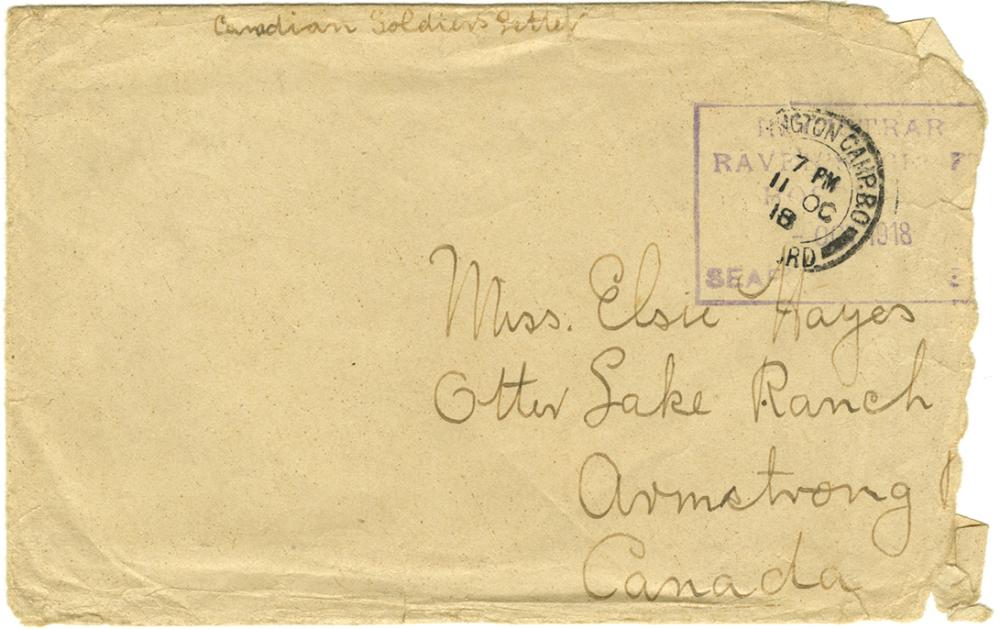 Canadian Soldiers Letter
NGTON CAMP.B.O
7 PM
11 OC
18
TRAR
RAV
1918
SEAF
Miss. Elsie Hayes
Otter Lake Ranch
Armstrong
Canada